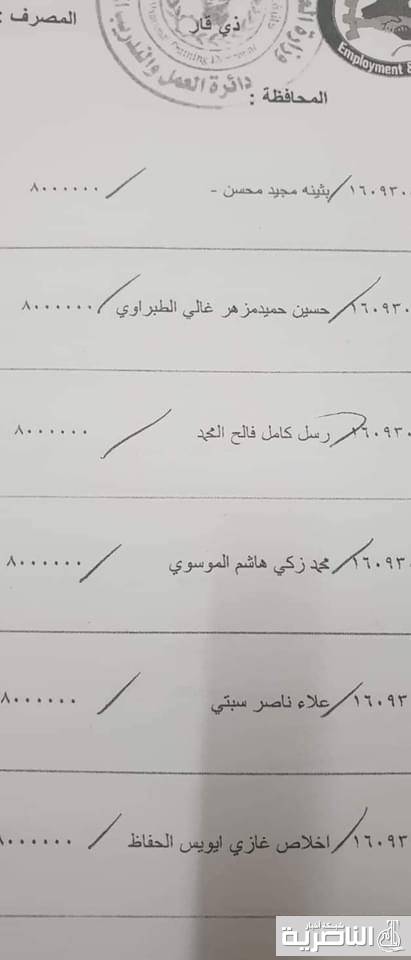 المصرف :
ذي قار
المحافظة :
دائرة العمل والتدريب
Employment &
١٦٠٩٣٠ بثينه مجيد محسن - ٨٠٠٠٠٠٠
١٦٠٩٣٠ حسين حميدمزهر غالي الطبراوي ٨٠٠٠٠٠٠
١٦٠٩٣٠ رسل كامل فالح المحمد ٨٠٠٠٠٠٠
١٦٠٩٣٠ محمد زكي هاشم الموسوي ٨٠٠٠٠٠٠
١٦٠٩٣ علاء ناصر سبتي ٨٠٠٠٠٠٠
١٦٠٩٣ اخلاص غازي ايويس الحفاظ ٨٠٠٠٠٠٠
شبكة اخبار
الناصرية